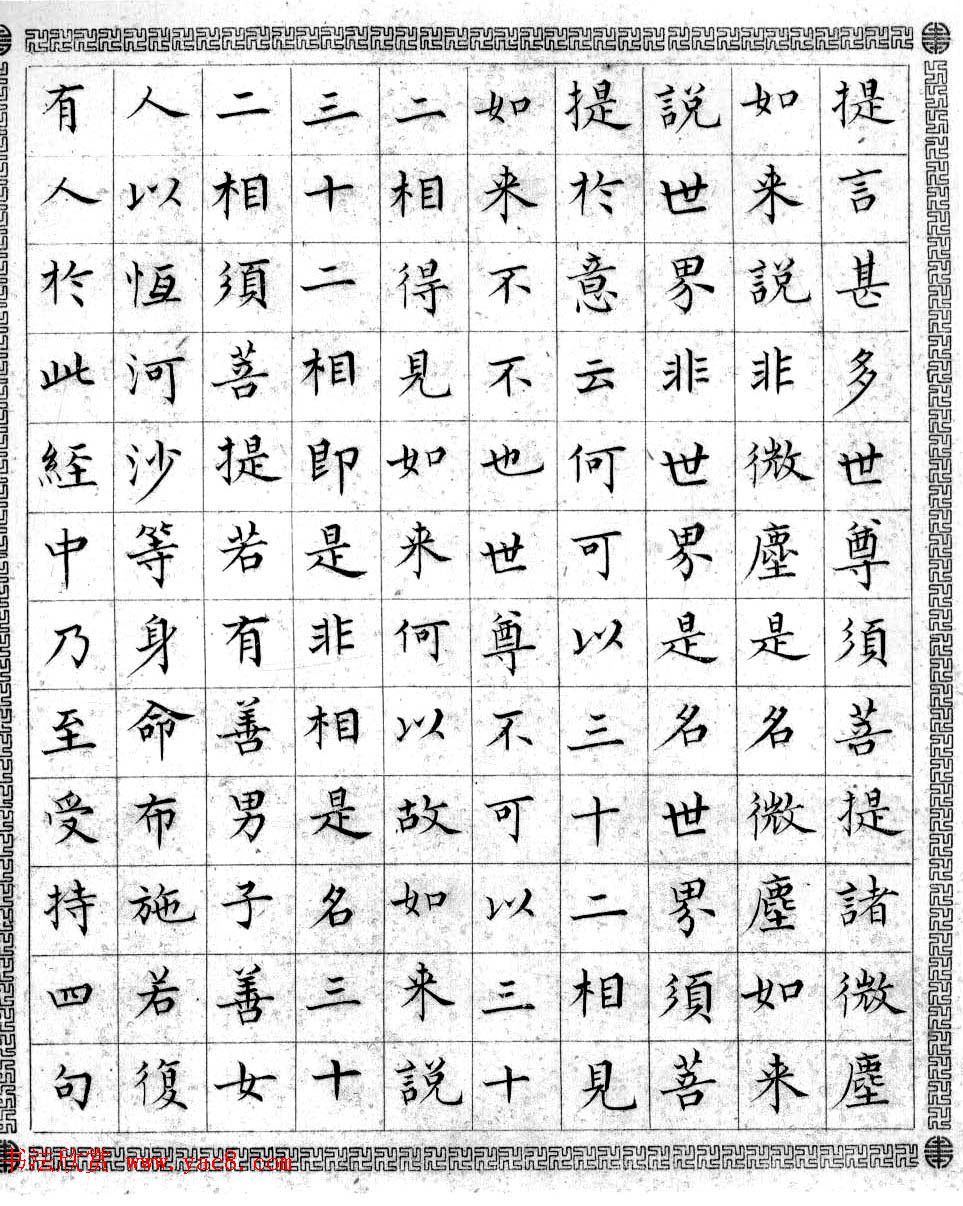 提言甚多世尊須菩提諸微塵
如来說非微塵是名微塵如来
說世界非世界是名世界須菩
提於意云何可以三十二相見
如来不不也世尊不可以三十
二相得見如来何以故如来說
三十二相即是非相是名三十
二相須菩提若有善男子善女
人以恆河沙等身命布施若復
有人於此經中乃至受持四句
书法欣赏 www.yac8.com